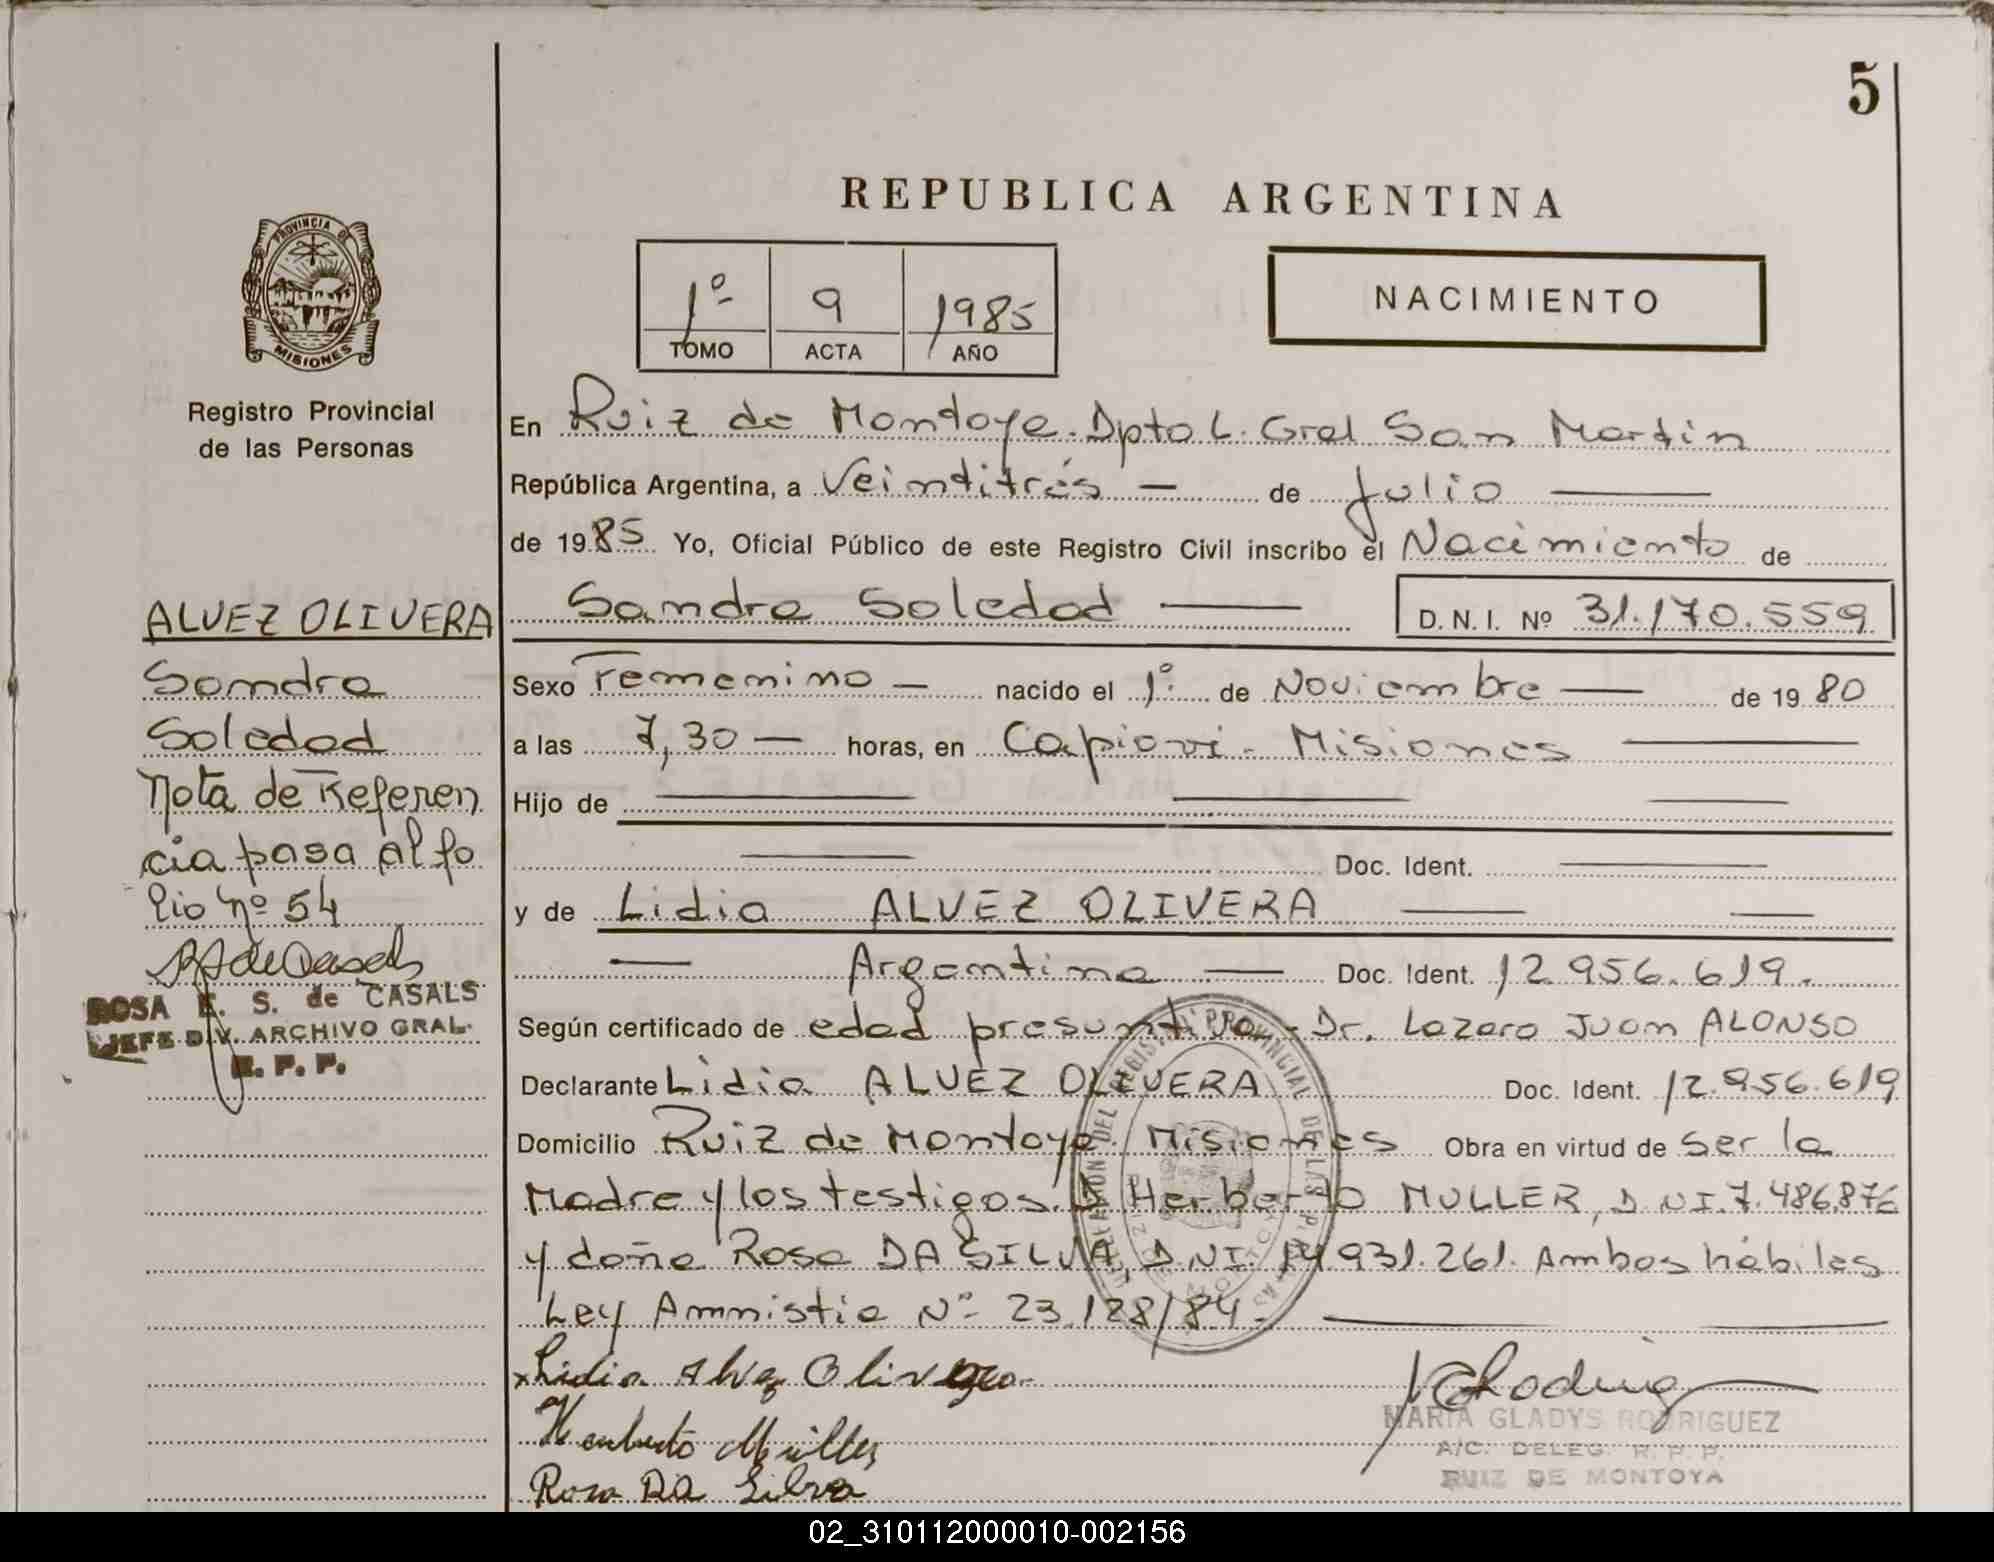 5
REPUBLICA ARGENTINA
PROVINCIA DE
MISIONES
Registro Provincial
de las Personas
1º 9 1985
TOMO ACTA AÑO
NACIMIENTO
En Ruiz de Montoya. Dpto L. Gral San Martin
República Argentina, a Veintitrés — de Julio —
de 1985 Yo, Oficial Público de este Registro Civil inscribo el Nacimiento de
Sandra Soledad — D. N. I. Nº 31.170.559
Sexo Femenino — nacido el 1º de Noviembre — de 1980
a las 7,30 — horas, en Capiovi - Misiones —
Hijo de — — —
— Doc. Ident. —
y de Lidia ALVEZ OLIVERA — —
— Argentina — Doc. Ident. 12.956.619.
Según certificado de edad presuntiva - Dr. Lazaro Juan ALONSO
Declarante Lidia ALVEZ OLIVERA Doc. Ident. 12.956.619
Domicilio Ruiz de Montoya. Misiones Obra en virtud de Ser la
Madre y los testigos. D Herberto MULLER, D.NI.7.486.876
y doña Rosa DA SILVA, D.NI. 14.931.261. Ambos hábiles
Ley Amnistia Nº 23.128/84. —
x Lidia Alvez Olivera
Herberto Müller
Rosa DA Silva
MARIA GLADYS RODRIGUEZ
A/C. DELEG. R. P. P.
RUIZ DE MONTOYA
ALVEZ OLIVERA
Sandra
Soledad
Nota de Referen
cia pasa al fo
lio Nº 54
ROSA E. S. de CASALS
JEFE DIV. ARCHIVO GRAL.
R. P. P.
02_310112000010-002156